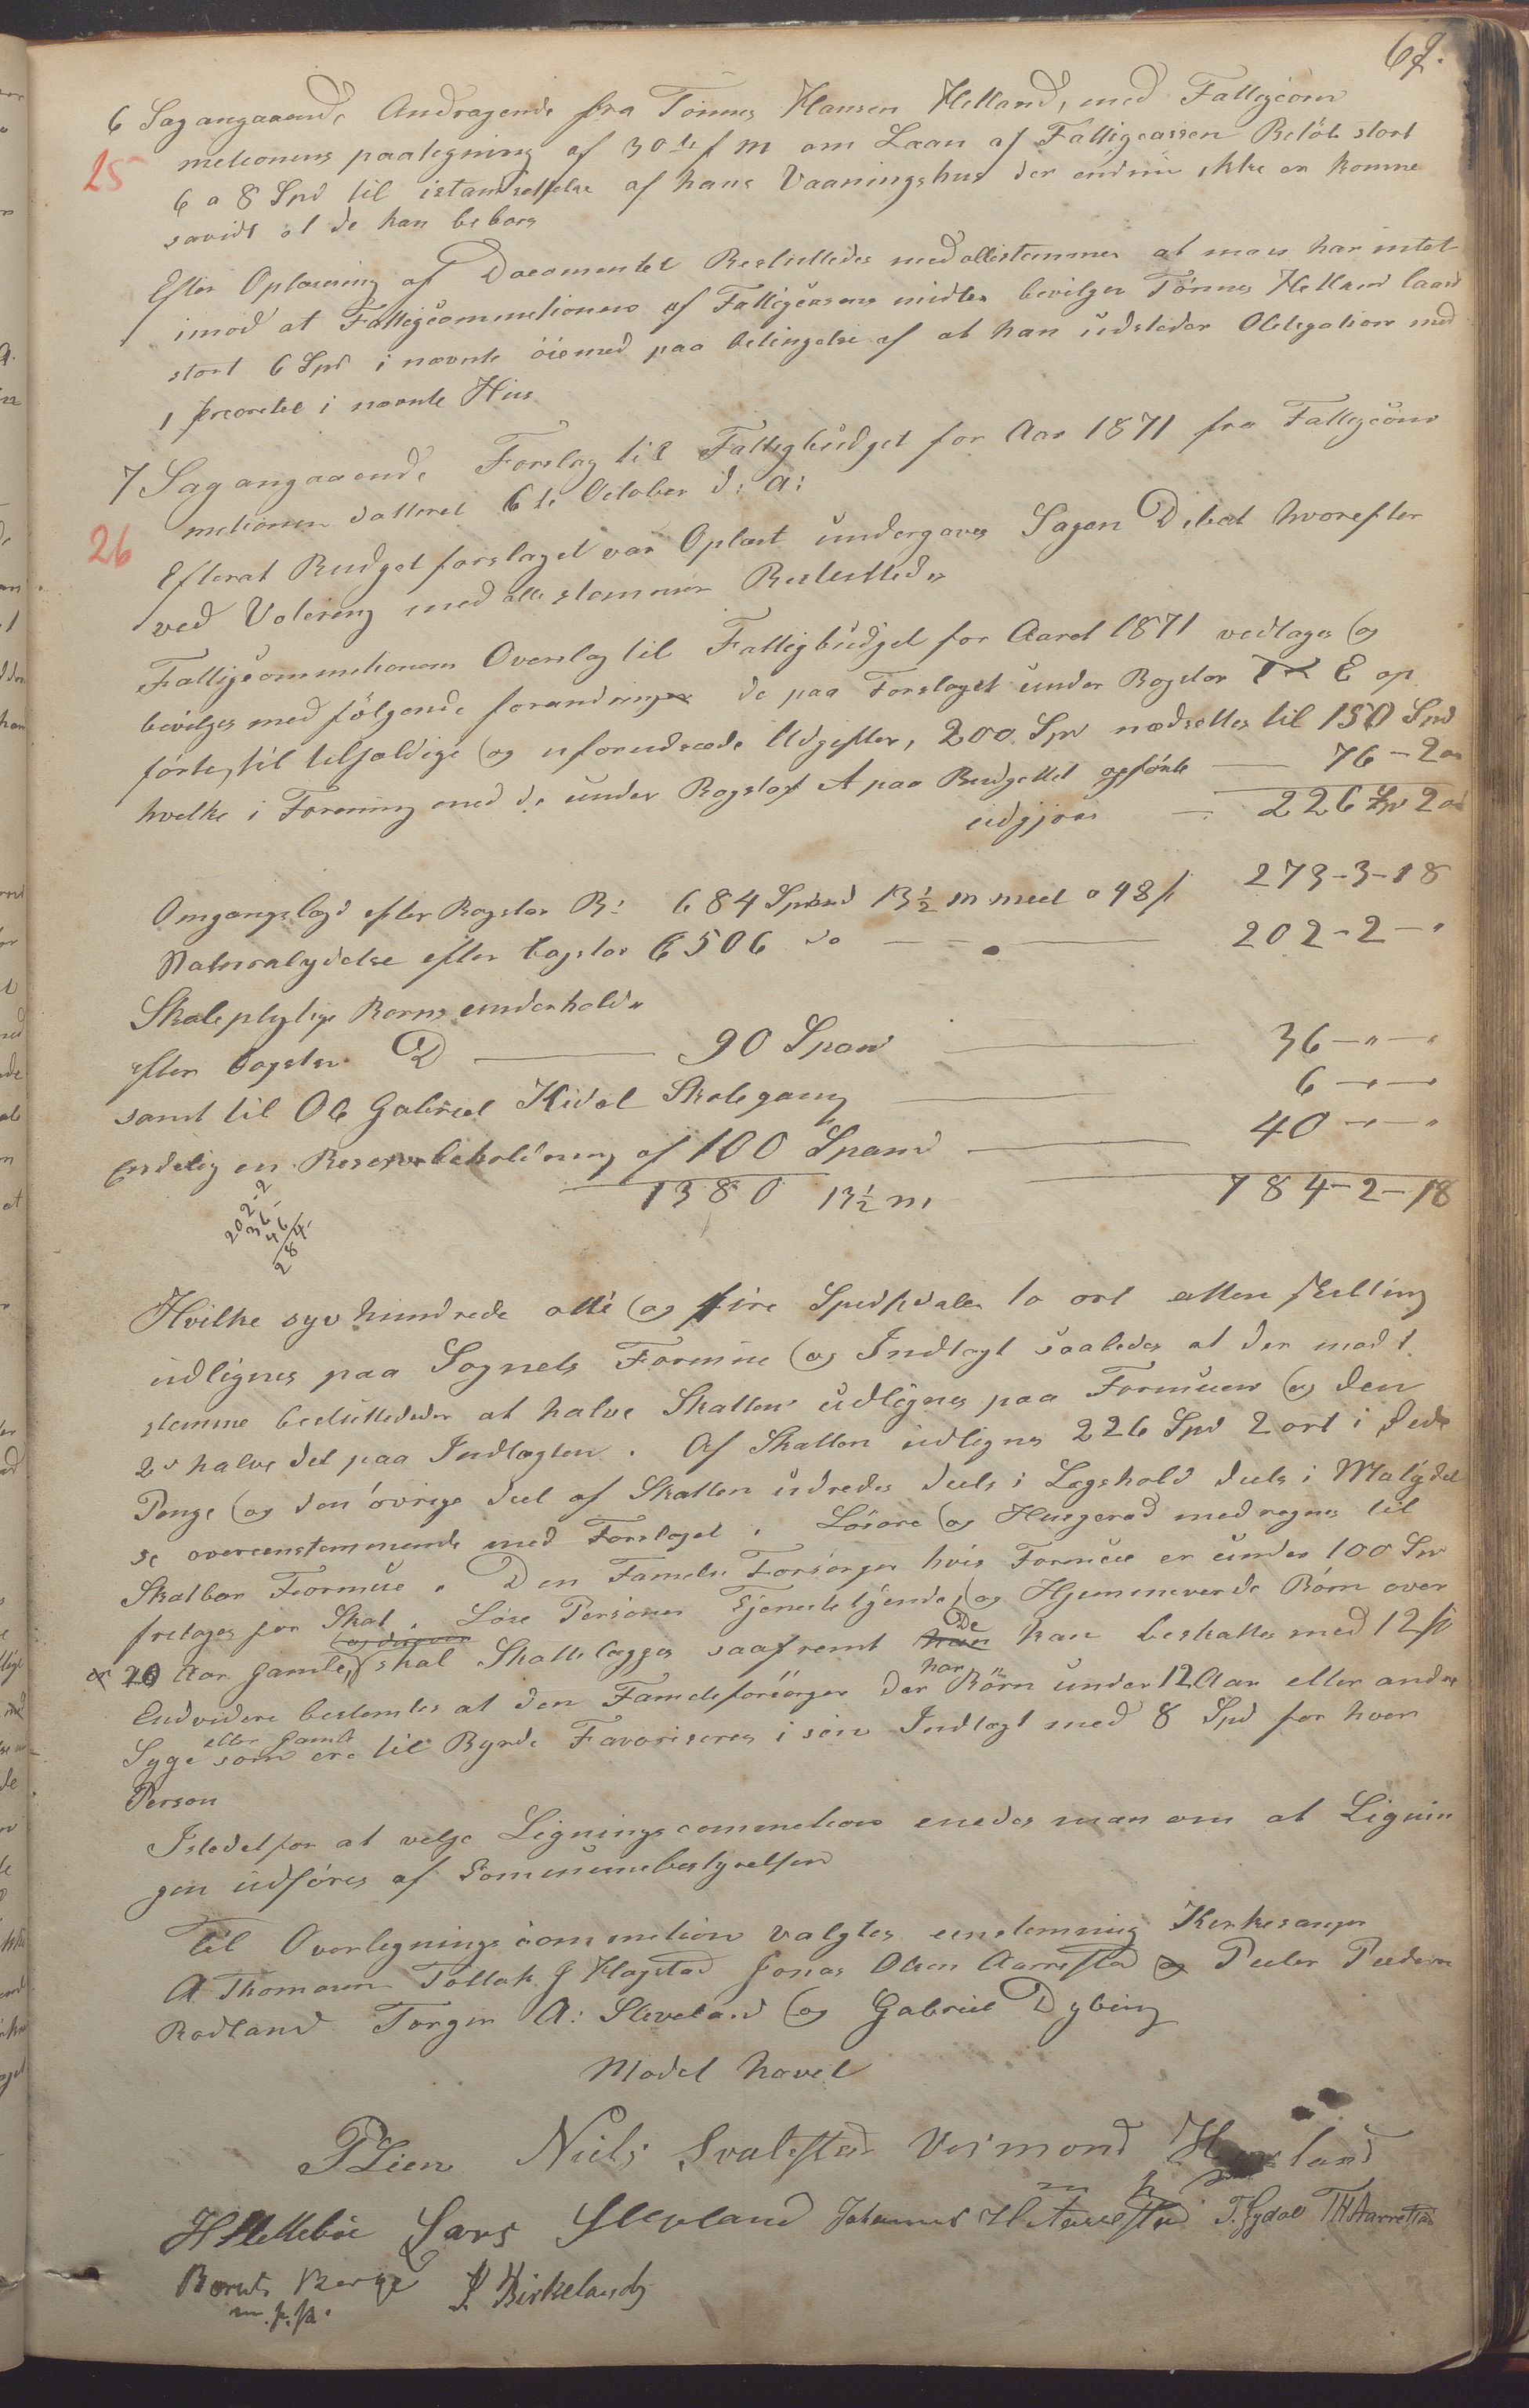 69.
6 Sag angaaende Andragende fra Tønnes Hansen Helland, med Fattigcom
25
metionens paategning af 30te f m om Laan af Fattigcassen Beløb stort
6 a 8 Spd til istandsettelse af hans Vaaningshus der endnu ikke er komme
savidt at de kan bebos
Efter Oplæsning af Documentet Besluttedes med allestemmer at man har intet
imod at Fattigcommetionen af Fattigcasens midler bevilger Tønnes Helland laan
stort 6 Spd i nævnte øiemed paa betingelse af at han udsteder Obligation med
1 preoretet i nævnte Hus
7 Sag angaaende Forslag til Fattigbudget for Aar 1871 fra Fattigcom
metionen datteret 6te October d: A:
26
Efterat Budgetforslaget var Oplæst undergaves Sagen Debat hvorefter
ved Votering med alle stemmer Besluttedes
Fattigcommetionens Overslag til Fattigbudget for Aaret 1871 vedtages og
bevilges med følgende forandringer de paa Forslaget under Bogstav E op
førte, til tilfældige og uforudseede Udgifter, 200 Spd nedsettes til 150 Spd
hvelke i Forening med de under Bogstav A paa Budgettet opførte — 76 - 2 ort
udgjøre — 226 Spd 2 ort
Omgangslægd efter Bogstav B: 684 Spand 13½ m meel a 48 s 273-3-18
Naturalydelse efter bogstav C 506 do — — 202-2-"
Skoleplygtige Børns underhold
efter bogstav D — 90 Span — 36-"-"
samt til Ole Gabriel Kidel Skolegang — 6-"-"
Endelig en Reservebeholdning af 100 Spand — 40-"-"
1380 13½ m 784-2-18
202-2
36-
46-
284-
Hvilke syv hundrede otti og fire Speciedaler to ort atten skelling
udlignes paa Sognets Formue og Indtægt saaledes at der mod 1
stemme besluttededes at halve Skatten udlignes paa Formuen og den
2de halve del paa Indtægten. Af Skatten udlignes 226 Spd 2 ort i rede
Penge og den øvrige deel af Skatten udredes deels i Legshold deels i Malydel
se overeenstemmende med Forslaget. Løsøre og Husgeraad medregnes til
Skatbar Formue. Den Famelie Forsørger hvis Formue er under 100 Spd
fretages for Skat. Løse Personer Tjenestetyende, og Hjemmeverende Børn over
er 20 Aar Gamle, og derover skal Skattelægges saafremt han De kan beskattes med 12 s
Endvidere bestemtes at den Famelieforsørger der har Børn under 12 Aar eller andre
Syge eller Gamle som ere til Byrde Favoriseres i sin Indtægt med 8 Spd for hver
Person
Istedetfor at velge Ligningscommetion enedes man om at Lignin
gen udføres af Communebestyrelsen
Til Overlegningscommetion valgtes enstemmig Kirkesanger
A Thomasen Tollak J Hagestad Jonas Olsen Aarrestad og Peder Pedersen
Rodland Torger A: Sleveland og Gabriel Dybing
Mødet hævet
P Lien Niels Svalestad Vermond Haaland
H Hellebøe Lars Slevland Johannes H Aarrestad T. Gydal TH Aarrestad
Bernt Berge P Birkeland
m.f.p.